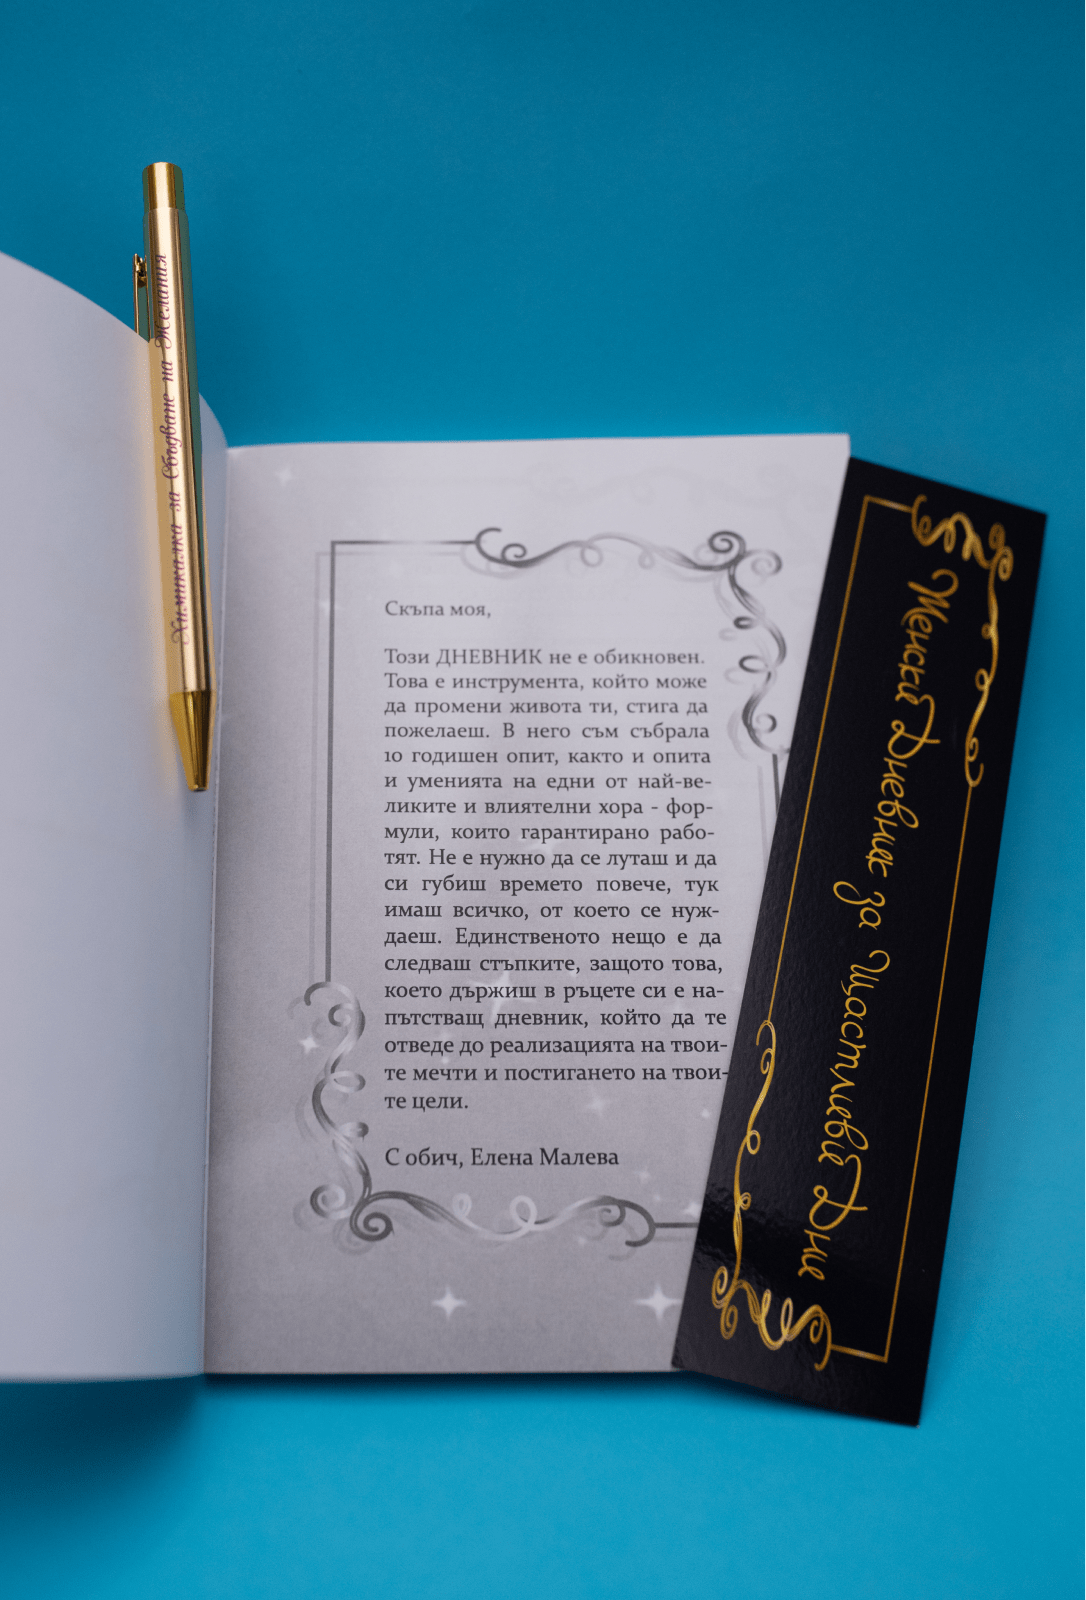 Химикалка за Сбъдване на Желания
Скъпа моя,
Този ДНЕВНИК не е обикновен.
Това е инструмента, който може
да промени живота ти, стига да
пожелаеш. В него съм събрала
10 годишен опит, както и опита
и уменията на едни от най-ве-
ликите и влиятелни хора - фор-
мули, които гарантирано рабо-
тят. Не е нужно да се луташ и да
си губиш времето повече, тук
имаш всичко, от което се нуж-
даеш. Единственото нещо е да
следваш стъпките, защото това,
което държиш в ръцете си е на-
пътстващ дневник, който да те
отведе до реализацията на твои-
те мечти и постигането на твои-
те цели.
С обич, Елена Малева
Женски Дневник за Щастливи Дни